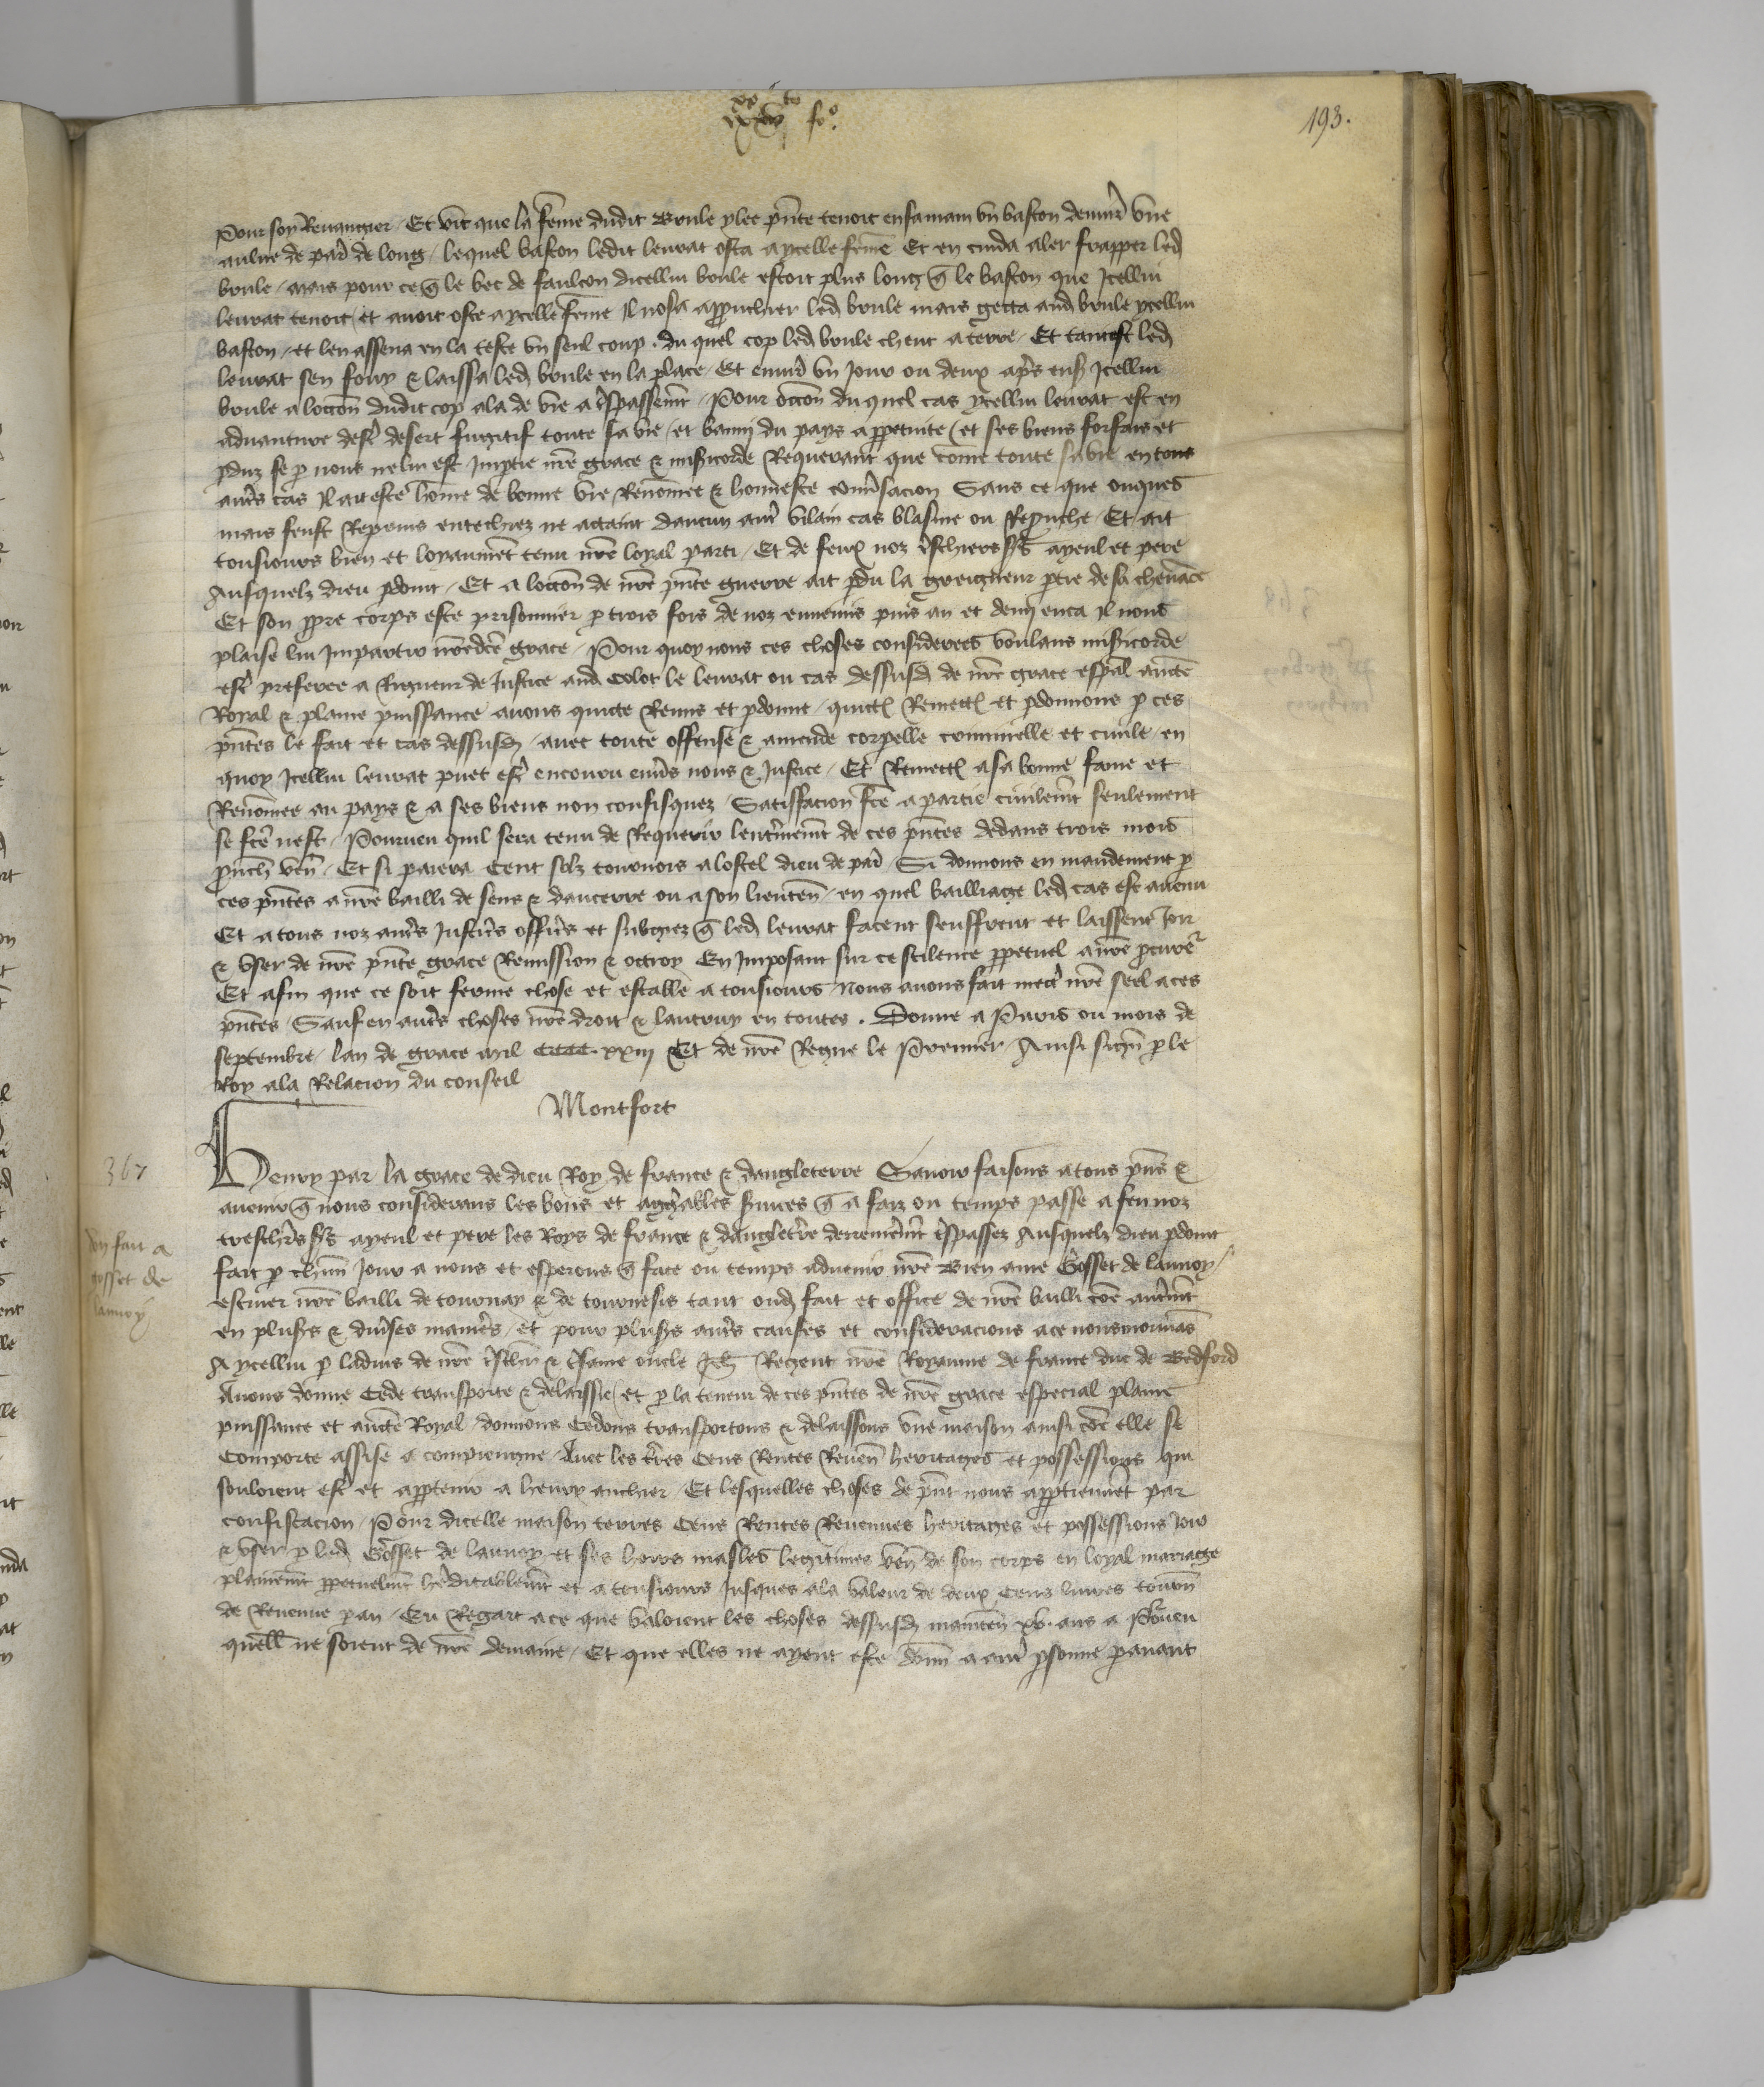 193.
Pour soy Reuanger / Et vit que la fẽme dudit Boule ylec pñte tenoit en sa main vn baston denuirõ vne
aulne de parĩ de long / lequel baston ledit leurat osta a ycelle fẽme Et en cuida aler frapper led
boule / Mais pour ce q̃ le bec de faulcon dicellui boule estoit plus long q̃ le baston que Icellui
leurat tenoit / et auoit oste a ycelle fẽme Il nosa approucher led boule mais getta aud boule ycellui
baston / et len assena en la teste vn seul coup . du quel cop led boule cheut a terre / Et tantost led
leurat sen fouy & laissa led boule en la place / Et enuirõ vn Jour ou deux apr̃s ens̃ Icellui
boule a loccoñ dudit cop ala de vie a t̃spassem̃t / Pour occoñ du quel cas ycellui leurat est en
aduanture dest̃ desert fugitif toute sa vie / et banny du pays a ppetuite / et ses biens forfais et
pduz se p nous ne lui est Imptie nr̃e grace & mis̃icorde Requerant que cõme toute sa vie en tous
autr̃s cas Il ait este hõme de bonne vie Renõmee & honneste conũsacion Sans ce que onques
mais feust Reprins entechiez ne attaint daucun autr̃ vilain cas blasme ou Reprouche / Et ait
tousiours bien et loyaumẽt tenu nr̃e loyal parti / Et de feux noz t̃schiers s̃rs ayeul et pere
Ausquelz dieu pdoint / Et a loccoñ de nr̃e pñte guerre ait pdu la greigneur ptie de sa cheuãce
Et son ppre corps este prisonnier p trois fois de noz ennemis puis an et demy enca Il nous
plaise lui Impartir nr̃edcẽ grace / Pour quoy nous ces choses considerees voulans mis̃icorde
est̃ preferee a Rigueur de Justice aud Colot le leurat ou cas dessusd de nr̃e grace esp̃al auctẽ
Royal & plaine puissance auons quicte Remis et pdonne / quictõs Remettõs et pdonnons p ces
pñtes le fait et cas dessusd / auec toute offense & amende corpelle criminelle et ciuile / en
quoy Icellui leurat puet est̃ encouru enũs nous & Justice / Et Remettõs a sa bonne fame et
Renõmee au pays & a ses biens non confisquez / Satisfacion fcẽ a partie ciuilem̃t seulement
se fcẽ nest / Pourueu quil sera tenu de Requerir lent̃inem̃t de ces pñtes dedans trois mois
prouch veñ / Et si paiera Cent solz tournois a lostel dieu de parĩ / Si donnons en mandement p
ces pñtes a nr̃e bailli de sens & daucerre ou a son lieuteñ / en quel bailliage led cas est auenu
Et a tous noz autr̃s Justic̃rs offic̃rs et subgiez q̃ led leurat facent seuffrent et laissent Joir
& vser de nr̃e pñte grace Remission & octroy En Imposant sur ce scilence ppetuel a nr̃e pcureᷣ
Et afin que ce soit ferme chose et estable a tousiours Nous auons fait mect̃ nr̃e seel a ces
pñtes / Sauf en autr̃s choses nr̃e droit & lautruy en toutes . Donne a Paris ou mois de
septembre / lan de grace mil CCCC xxiij Et de nr̃e Regne le Premier / Ainsi signẽ p le
Roy a la Relacion du conseil
Montfort
367
Henry par la grace de dieu Roy de france & dangleterre Sauoir faisons a tous pñs &
auenir q̃ nous considerans les bons et aggr̃ables s̃uices q̃ a faiz ou temps passe a feu noz
treschiers s̃rs ayeul et pere les Roys de france & dangletr̃e derrenierem̃t t̃spassez Ausquelz dieu pdoint
fait p chũn Jour a nous et esperons q̃ face ou temps aduenir nr̃e Bien ame Gosset de lannoy /
escuier nr̃e bailli de tournay & de tournesis tant oud fait et office de nr̃e bailli cõe autr̃m̃t
en plus̃rs & diũses manier̃s / et pour plus̃rs autr̃s causes et consideracions a ce nous mouuãs
A ycellui p laduis de nr̃e t̃schr̃ & t̃same oncle Jeh Regent nr̃e Royaume de france duc de Bedford
Auons donne Cede transporte & delaissie / et p la teneur de ces pñtes de nr̃e grace especial plaine
puissance et auctẽ Royal donnons Cedons transportons & delaissons vne maison ainsi cõe elle se
Comporte assise a compiengne / Auec les tr̃res Cens Rentes Reueñ heritages et possessions qui
souloient est̃ et apptenir a henry / Et lesquelles choses de pñt nous apptiennẽt par
confiscacion / Pour dicelle maison terres Cens Rentes Reuenues heritages et possessions Joir
& vser p led Gosset de lannoy et ses hoirs masles legitimes veñ de son corps en loyal mariage
plainem̃t ppetuelm̃t hẽditablem̃t et a tousiours Jusques a la valeur de deux Cens liures tourñ
de Reuenue p an / Eu Regart a ce que valoient les choses dessusd maintẽn xv. ans a Pourueu
quell ne soient de nr̃e demaine / Et que elles ne ayent este donñ a autr̃ psonne parauant
don fait a
gosset de
lannoy